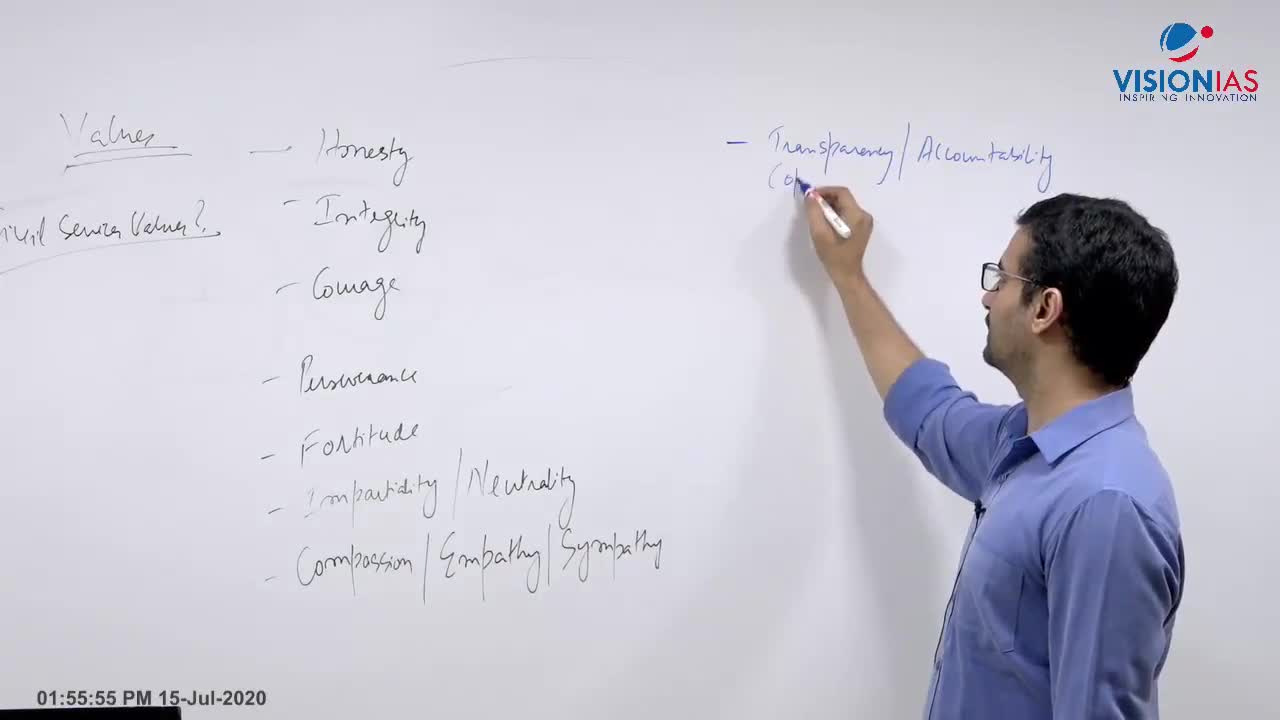 VISIONIAS
INSPIRING INNOVATION
Values
Civil Services Values?
- Honesty
- Integrity
- Courage
- Perseverance
- Fortitude
- Impartiality / Neutrality
- Compassion / Empathy / Sympathy
- Transparency / Accountability
01:55:55 PM 15-Jul-2020